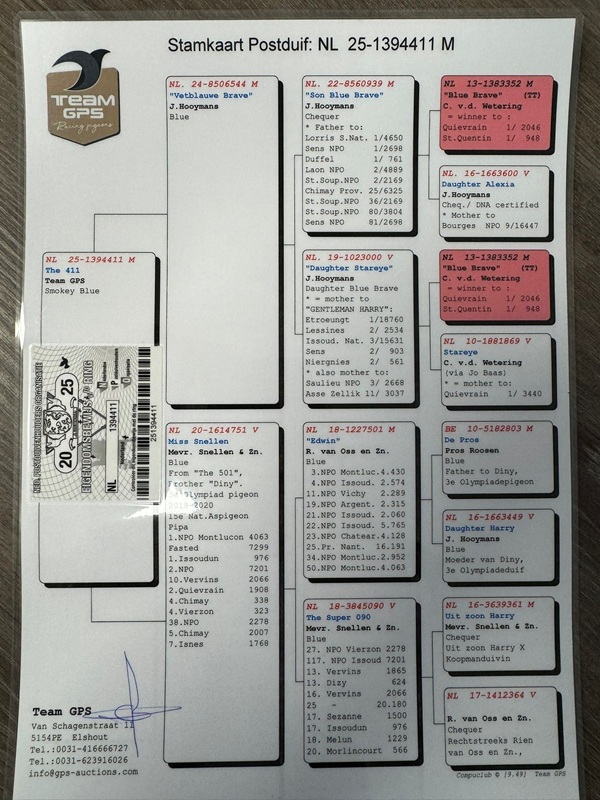 Stamkaart Postduif: NL 25-1394411 M
TEAM
GPS
Racing pigeons
NL 25-1394411 M
The 411
Team GPS
Smokey Blue
NED. POSTDUIVENHOUDERS ORGANISATIE
20 25
EIGENDOMSBEWIJS V/D RING
NL 1394411
251394411
NL. 24-8506544 M
"Vetblauwe Brave"
J.Hooymans
Blue
NL 20-1614751 V
Miss Snellen
Mevr. Snellen & Zn.
Blue
From "The 501",
"Diny".
Olympiad pigeon
-2020
15e Nat.Aspigeon
Pipa
1.NPO Montlucon 4063
Fasted 7299
1.Issoudun 976
2.NPO 7201
10.Vervins 2066
2.Quievrain 1908
4.Chimay 338
4.Vierzon 323
38.NPO 2278
5.Chimay 2007
7.Isnes 1768
NL. 22-8560939 M
"Son Blue Brave"
J.Hooymans
Chequer
* Father to:
Lorris S.Nat. 1/4650
Sens NPO 1/2698
Duffel 1/ 761
Laon NPO 2/4889
St.Soup.NPO 2/2169
Chimay Prov. 25/6325
St.Soup.NPO 36/2169
St.Soup.NPO 80/3804
Sens NPO 81/2698
NL. 19-1023000 V
"Daughter Stareye"
J.Hooymans
Daughter Blue Brave
* = mother to
"GENTLEMAN HARRY":
Etroeungt 1/18760
Lessines 2/ 2534
Issoud. Nat. 3/15631
Sens 2/ 903
Niergnies 2/ 561
* also mother to:
Saulieu NPO 3/ 2668
Asse Zellik 11/ 3037
NL 18-1227501 M
"Edwin"
R. van Oss en Zn.
Blue
3.NPO Montluc.4.430
4.NPO Issoud. 2.574
11.NPO Vichy 2.289
19.NPO Argent. 2.315
21.NPO Issoud. 2.060
22.NPO Issoud. 5.765
23.NPO Chatear.4.128
25.Pr. Nant. 16.191
34.NPO Montluc.2.952
50.NPO Montluc.4.063
NL 18-3845090 V
The Super 090
Mevr. Snellen & Zn.
Blue
27. NPO Vierzon 2278
117. NPO Issoud 7201
13. Vervins 1865
13. Dizy 624
16. Vervins 2066
25 - 20.180
17. Sezanne 1500
17. Issoudun 976
18. Melun 1229
20. Morlincourt 566
NL 13-1383352 M
"Blue Brave" (TT)
C. v.d. Wetering
= winner to :
Quievrain 1/ 2046
St.Quentin 1/ 948
NL. 16-1663600 V
Daughter Alexia
J.Hooymans
Cheq./ DNA certified
* Mother to
Bourges NPO 9/16447
NL 13-1383352 M
"Blue Brave" (TT)
C. v.d. Wetering
= winner to :
Quievrain 1/ 2046
St.Quentin 1/ 948
NL 10-1881869 V
Stareye
C. v.d. Wetering
(via Jo Baas)
* = mother to:
Quievrain 1/ 3440
BE 10-5182803 M
De Pros
Pros Roosen
Blue
Father to Diny,
3e Olympiadepigeon
NL 16-1663449 V
Daughter Harry
J. Hooymans
Blue
Moeder van Diny,
3e Olympiadeduif
NL 16-3639361 M
Uit zoon Harry
Mevr. Snellen & Zn.
Chequer
Uit zoon Harry X
Koopmanduivin
NL 17-1412364 V
R. van Oss en Zn.
Chequer
Rechtstreeks Rien
van Oss en Zn.,
Team GPS
Van Schagenstraat 11
5154PE Elshout
Tel.:0031-416666727
Tel.:0031-623916026
info@gps-auctions.com
Compuclub © [9.49] Team GPS